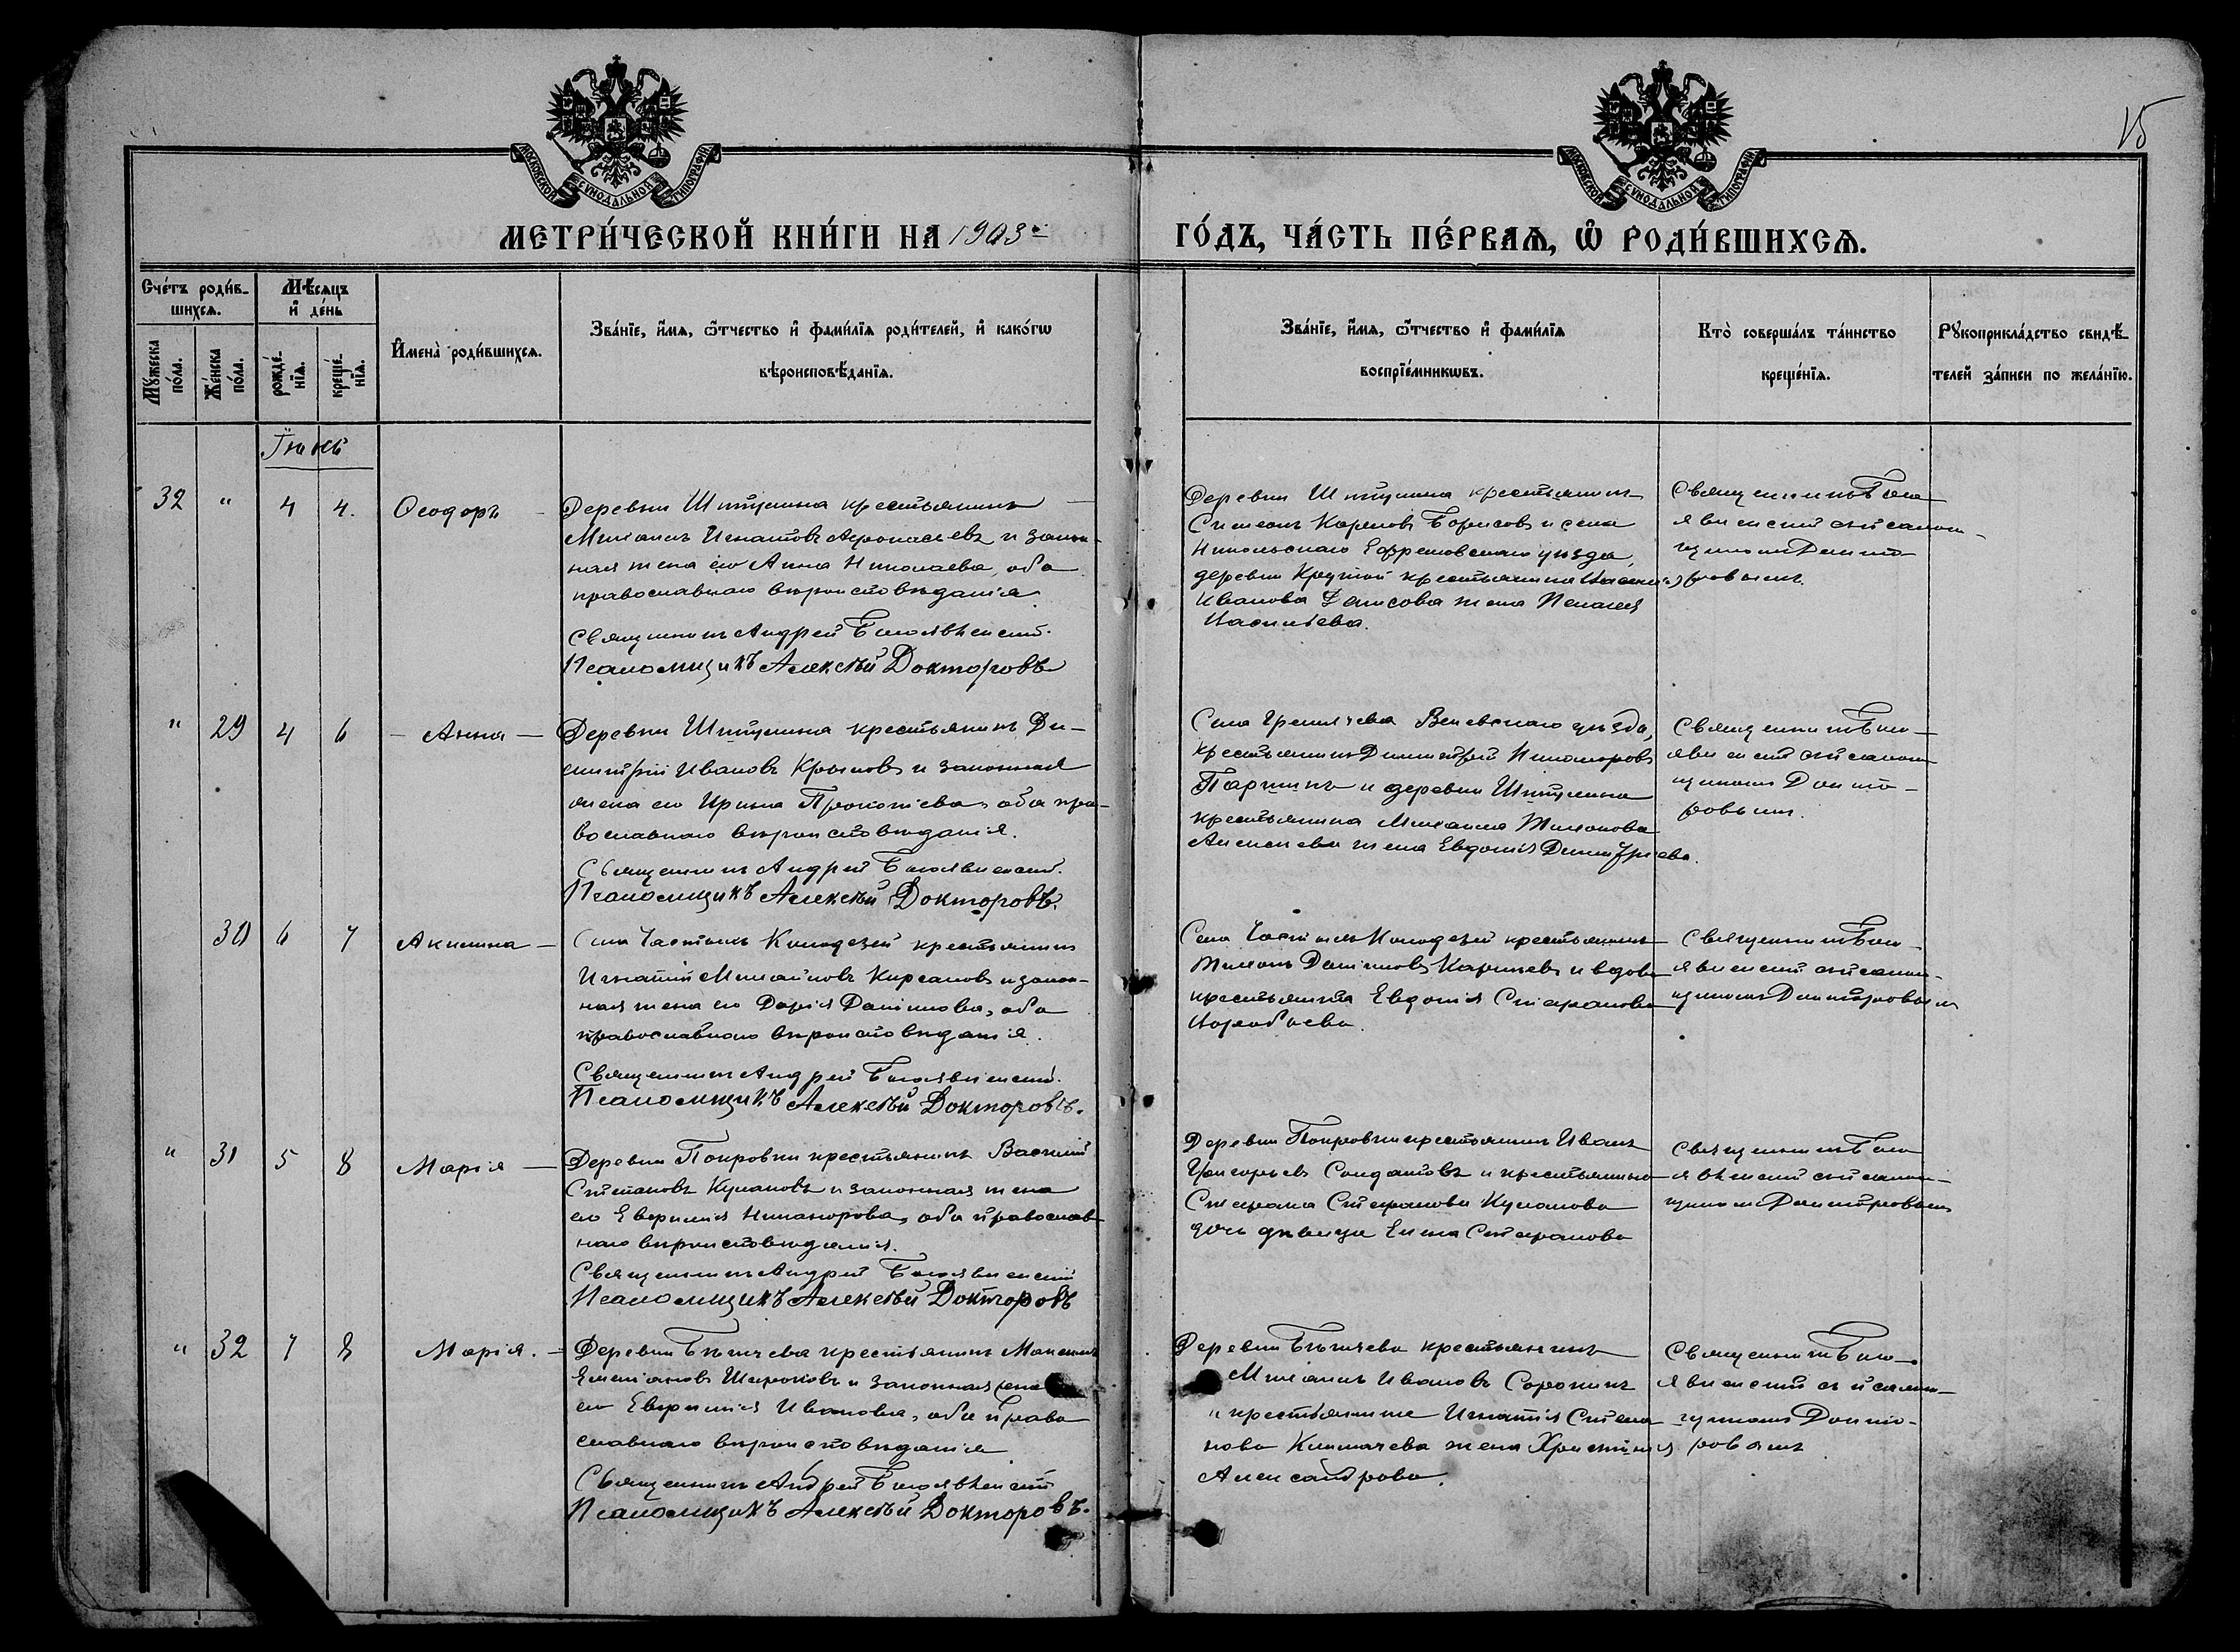 15
МОСКОВСКОЙ СѴНОДАЛЬНОЙ ТИПОГРАФІИ
МОСКОВСКОЙ СѴНОДАЛЬНОЙ ТИПОГРАФІИ
МЕТРИ́ЧЕСКОЙ КНИ́ГИ НА 1903 й
ГО́ДЪ, ЧА́СТЬ ПЕ́РВАѦ, Ѡ РОДИ́ВШИХСѦ.
Сче́тъ роди́в-
шихсѧ.
Мꙋ́жеска по́ла.
Же́нска по́ла.
Мѣ́сѧцъ
и де́нь
рожде́-
нїѧ.
креще́-
нїѧ.
И҆мена̀ роди́вшихсѧ.
Зва́нїе, и҆́мѧ, ѻ҆́тчество и҆ фами́лїѧ роди́телей, и҆ како́гѡ
вѣроисповѣ́данїѧ.
Зва́нїе, и҆́мѧ, ѻ҆́тчество и҆ фами́лїѧ
воспрїе́мникѡвъ.
Кто̀ соверша́лъ та́инство
креще́нїѧ.
Рꙋкоприкла́дство свидѣ́-
телей за́писи по жела́нїю.
Іюнь
32 " 4 4. Ѳеодоръ
Деревни Шитулина крестьянинъ
Михаилъ Игнатовъ Афонасьевъ и закон-
ная жена его Анна Николаева, оба
православнаго вѣроисповѣданія.
Священникъ Андрей Богоявленскій.
Псаломщикъ Алексѣй Докторовъ
Деревни Шитулина крестьянинъ
Симеонъ Карповъ Борисовъ и села
Никольскаго Ефремовскаго уѣзда,
деревни Крутой крестьянина
Иванова Денисова жена Пелагея
Васильева.
Священникъ Бого-
явленскій съ псалом-
щикомъ Докто-
ровымъ.
" 29 4 6 – Анна –
Деревни Шитулина крестьянинъ Ди-
митрій Ивановъ Крыновъ и законная
жена его Ирина Прокопіева, оба пра-
вославнаго вѣроисповѣданія.
Священникъ Андрей Богоявленскій.
Псаломщикъ Алексѣй Докторовъ.
Села Веневскаго уѣзда,
крестьянинъ Димитрій Никаноровъ
и деревни Шитулина
крестьянина Михаила Тихонова
Алексеева жена Евдокія Димитріева.
Священникъ Бого-
явленскій съ псалом-
щикомъ Докто-
ровымъ.
30 6 7 Акилина –
Села Частыхъ Колодезей крестьянинъ
Игнатій Михайловъ Кирсановъ и закон-
ная жена его Дарія Даніилова, оба
православнаго вѣроисповѣданія.
Священникъ Андрей Богоявленскій.
Псаломщикъ Алексѣй Докторовъ.
Села Частыхъ Колодезей крестьянинъ
Тихонъ Даніиловъ и вдова
крестьянка Евдокія Стефанова
Воробьева.
Священникъ Бого-
явленскій съ псалом-
щикомъ Докторовымъ
" 31 5 8 Марія –
Деревни Покровки крестьянинъ Василій
Степановъ Кулаковъ и законная жена
его Евфимія Никанорова, оба православ-
наго вѣроисповѣданія.
Священникъ Андрей Богоявленскій
Псаломщикъ Алексѣй Докторовъ
Деревни Покровки крестьянинъ Иванъ
Григорьевъ Солдатовъ и крестьянина
Стефана Стефанова Кулакова
дочь дѣвица Елена Стефанова
Священникъ Бого-
явленскій съ псалом-
щикомъ Докторовымъ
" 32 7 8 Марія. –
Деревни Бѣгичева крестьянинъ Максимъ
Емеліановъ Широковъ и законная жена
его Евфимія Иванова, оба право
славнаго вѣроисповѣданія
Священникъ Андрей Богоявленскій
Псаломщикъ Алексѣй Докторовъ.
Деревни Бѣгичева крестьянинъ
Михаилъ Ивановъ Сорокинъ
и крестьянина Игнатія Степа
нова жена Христина
Александрова.
Священникъ Бого-
явленскій съ псалом-
щикомъ Докто-
ровымъ